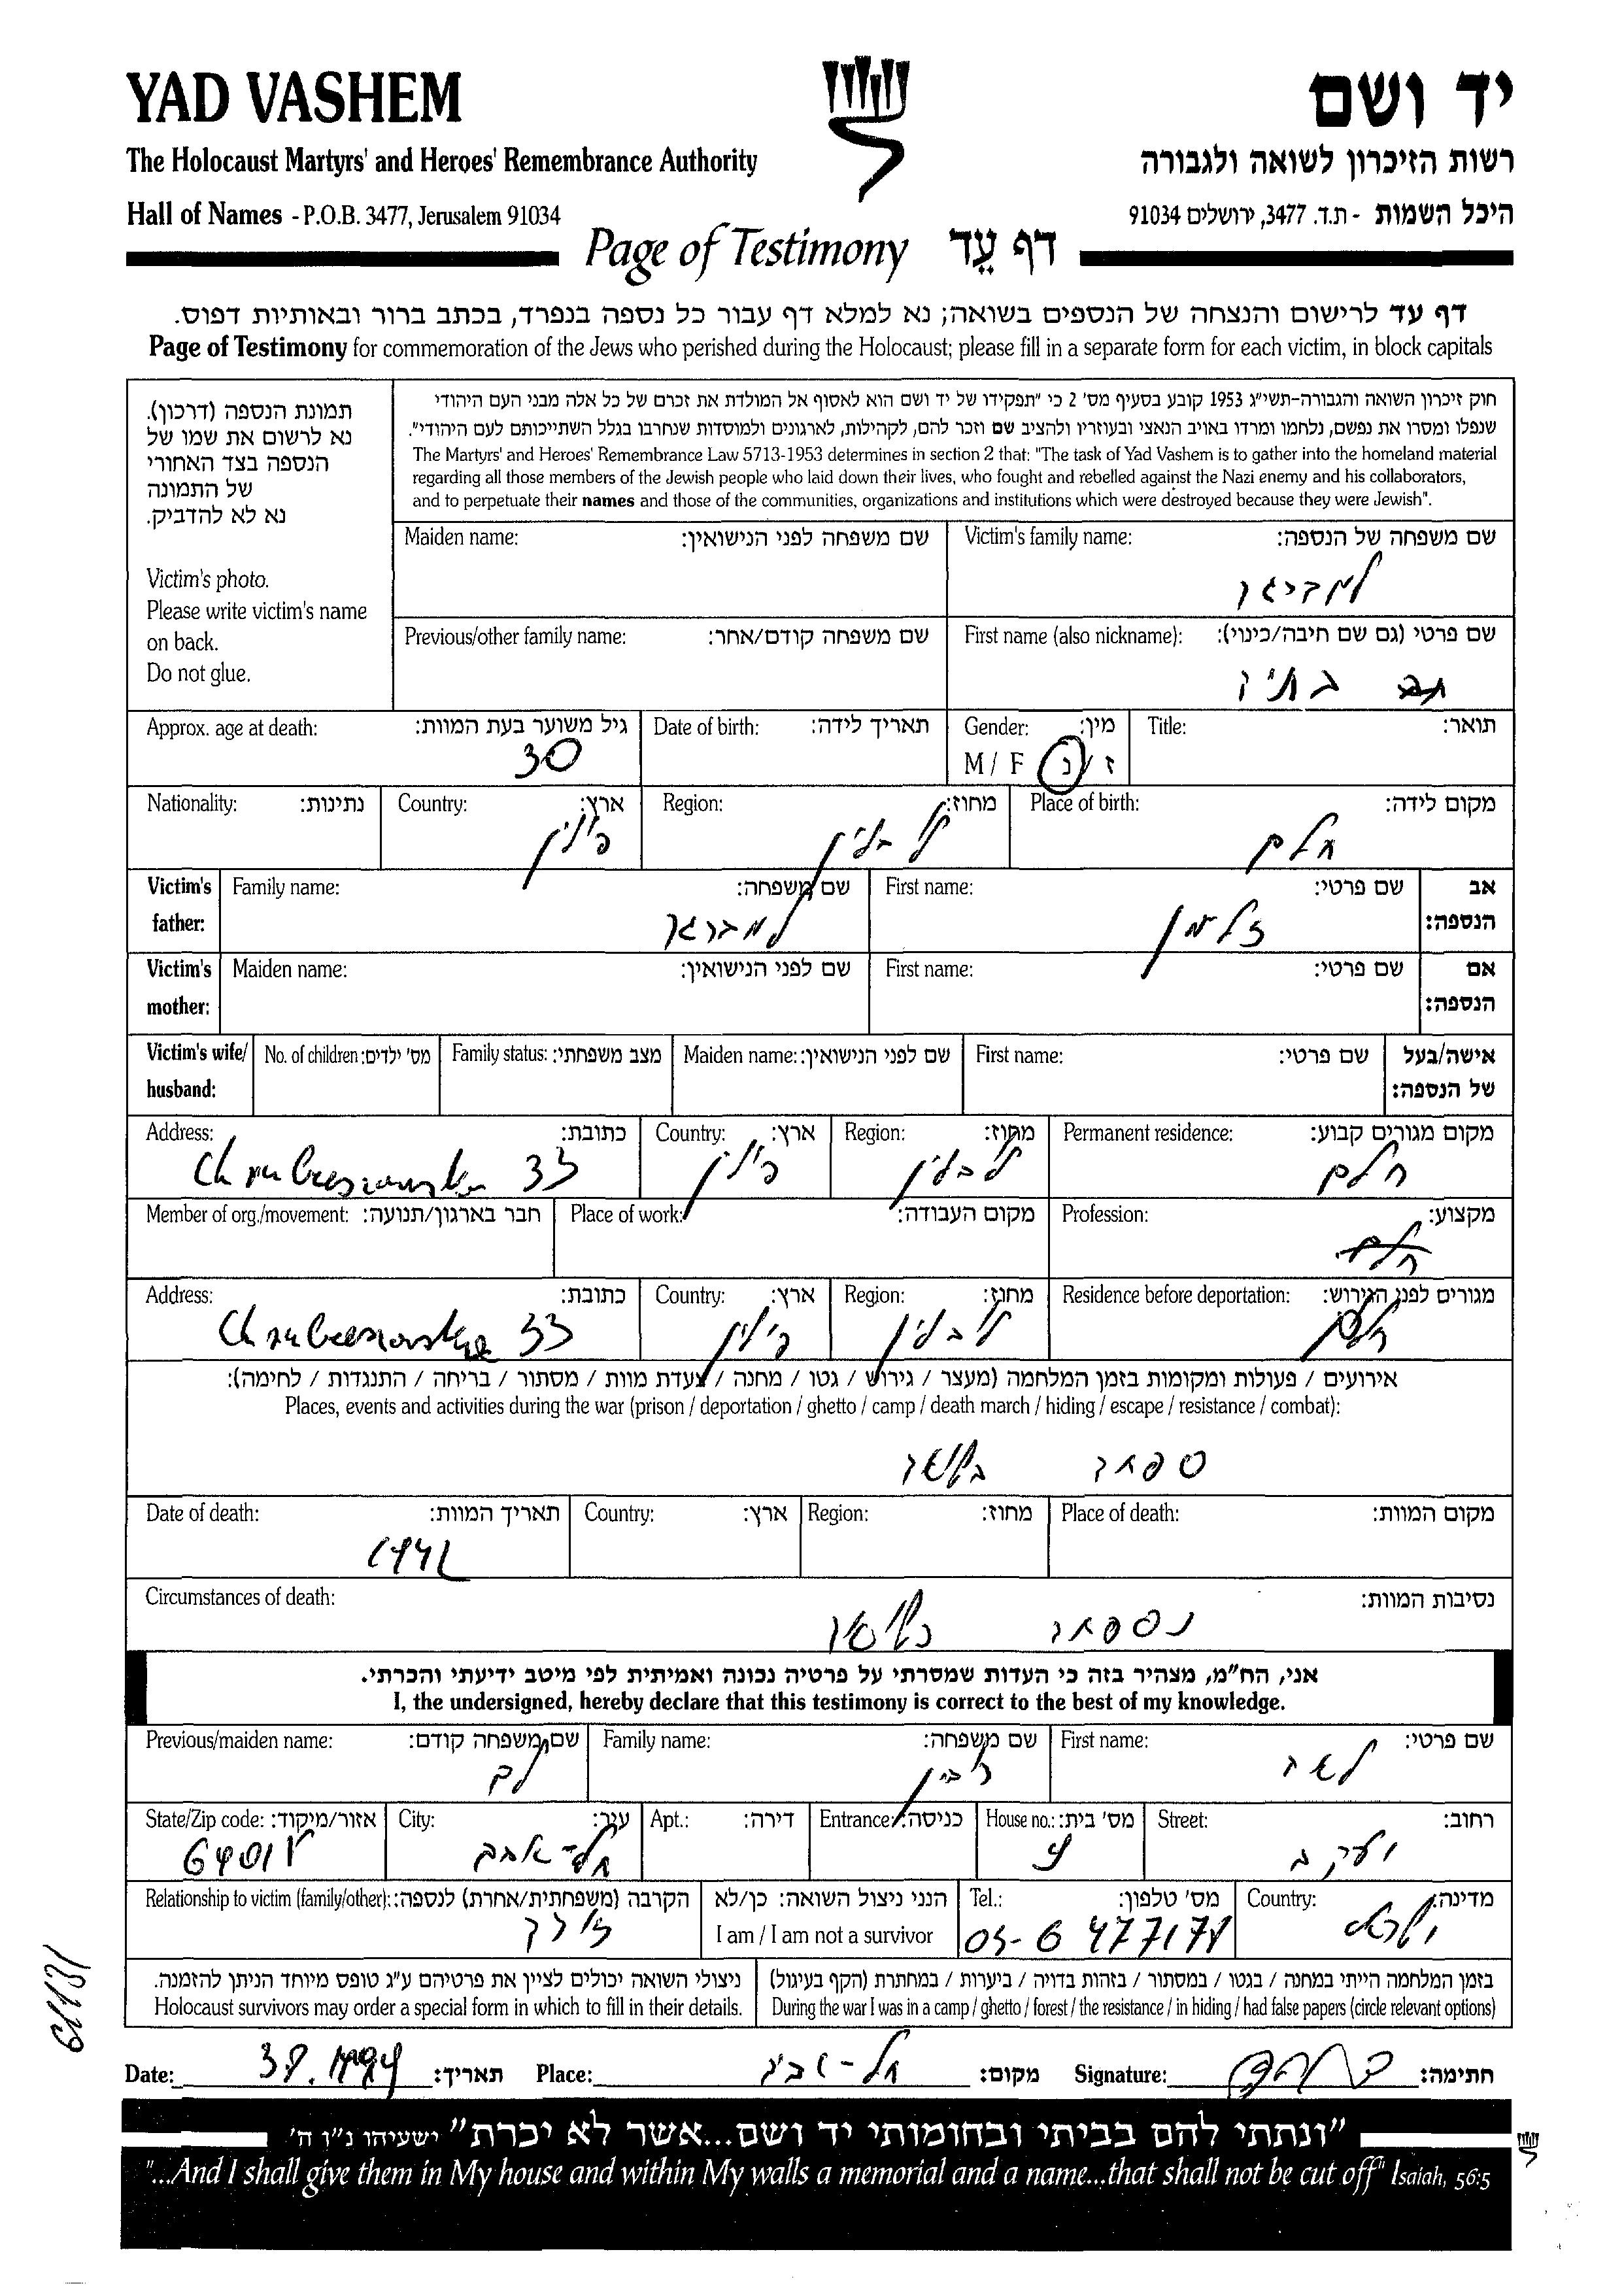 YAD VASHEM
יד ושם
The Holocaust Martyrs' and Heroes' Remembrance Authority
רשות הזיכרון לשואה ולגבורה
Hall of Names - P.O.B. 3477, Jerusalem 91034
היכל השמות - ת.ד. 3477, ירושלים 91034
Page of Testimony דף עֵד
דף עד לרישום והנצחה של הנספים בשואה; נא למלא דף עבור כל נספה בנפרד, בכתב ברור ובאותיות דפוס.
Page of Testimony for commemoration of the Jews who perished during the Holocaust; please fill in a separate form for each victim, in block capitals
תמונת הנספה (דרכון).
נא לרשום את שמו של
הנספה בצד האחורי
של התמונה
נא לא להדביק.
Victim's photo.
Please write victim's name
on back.
Do not glue.
חוק זיכרון השואה והגבורה-תשי"ג 1953 קובע בסעיף מס' 2 כי "תפקידו של יד ושם הוא לאסוף אל המולדת את זכרם של כל אלה מבני העם היהודי
שנפלו ומסרו את נפשם, נלחמו ומרדו באויב הנאצי ובעוזריו ולהציב שם וזכר להם, לקהילות, לארגונים ולמוסדות שנחרבו בגלל השתייכותם לעם היהודי".
The Martyrs' and Heroes' Remembrance Law 5713-1953 determines in section 2 that: "The task of Yad Vashem is to gather into the homeland material
regarding all those members of the Jewish people who laid down their lives, who fought and rebelled against the Nazi enemy and his collaborators,
and to perpetuate their names and those of the communities, organizations and institutions which were destroyed because they were Jewish".
Victim's family name: שם משפחה של הנספה:
Maiden name: שם משפחה לפני הנישואין:
First name (also nickname): שם פרטי (גם שם חיבה/כינוי):
בתיה
Previous/other family name: שם משפחה קודם/אחר:
Title: תואר:
Gender: מין:
M / F ז / נ
Date of birth: תאריך לידה:
Approx. age at death: גיל משוער בעת המוות:
30
Place of birth: מקום לידה:
חלם
Region: מחוז:
לובלין
Country: ארץ:
פולין
Nationality: נתינות:
Victim's father: אב הנספה:
First name: שם פרטי:
זלמן
Family name: שם משפחה:
למברגר
Victim's mother: אם הנספה:
First name: שם פרטי:
Maiden name: שם לפני הנישואין:
Victim's wife/ husband: אישה/בעל של הנספה:
First name: שם פרטי:
Maiden name: שם לפני הנישואין:
Family status: מצב משפחתי:
No. of children: מס' ילדים:
Permanent residence: מקום מגורים קבוע:
חלם
Region: מחוז:
לובלין
Country: ארץ:
פולין
Address: כתובת:
33
Profession: מקצוע:
Place of work: מקום העבודה:
Member of org./movement: חבר בארגון/תנועה:
Residence before deportation: מגורים לפני הגירוש:
חלם
Region: מחוז:
לובלין
Country: ארץ:
פולין
Address: כתובת:
33
אירועים / פעולות ומקומות בזמן המלחמה (מעצר / גירוש / גטו / מחנה / צעדת מוות / מסתור / בריחה / התנגדות / לחימה):
Places, events and activities during the war (prison / deportation / ghetto / camp / death march / hiding / escape / resistance / combat):
Place of death: מקום המוות:
Region: מחוז:
Country: ארץ:
Date of death: תאריך המוות:
1942
Circumstances of death: נסיבות המוות:
נספתה בשואה
אני, הח"מ, מצהיר בזה כי העדות שמסרתי על פרטיה נכונה ואמיתית לפי מיטב ידיעתי והכרתי.
I, the undersigned, hereby declare that this testimony is correct to the best of my knowledge.
First name: שם פרטי:
לאה
Family name: שם משפחה:
Previous/maiden name: שם משפחה קודם:
Street: רחוב:
House no.: מס' בית:
Entrance: כניסה:
Apt.: דירה:
City: עיר:
תל-אביב
State/Zip code: אזור/מיקוד:
Country: מדינה:
ישראל
Tel.: מס' טלפון:
הנני ניצול השואה: כן/לא
I am / I am not a survivor
Relationship to victim (family/other): הקרבה (משפחתית/אחרת) לנספה:
בזמן המלחמה הייתי במחנה / בגטו / במסתור / בזהות בדויה / ביערות / במחתרת (הקף בעיגול)
During the war I was in a camp / ghetto / forest / the resistance / in hiding / had false papers (circle relevant options)
ניצולי השואה יכולים לציין את פרטיהם ע"ג טופס מיוחד הניתן להזמנה.
Holocaust survivors may order a special form in which to fill in their details.
Date: תאריך:
Place: תל-אביב מקום:
Signature: חתימה:
"ונתתי להם בביתי ובחומותי יד ושם...אשר לא יכרת" ישעיהו נ"ו ה'
"...And I shall give them in My house and within My walls a memorial and a name...that shall not be cut off" Isaiah, 56:5